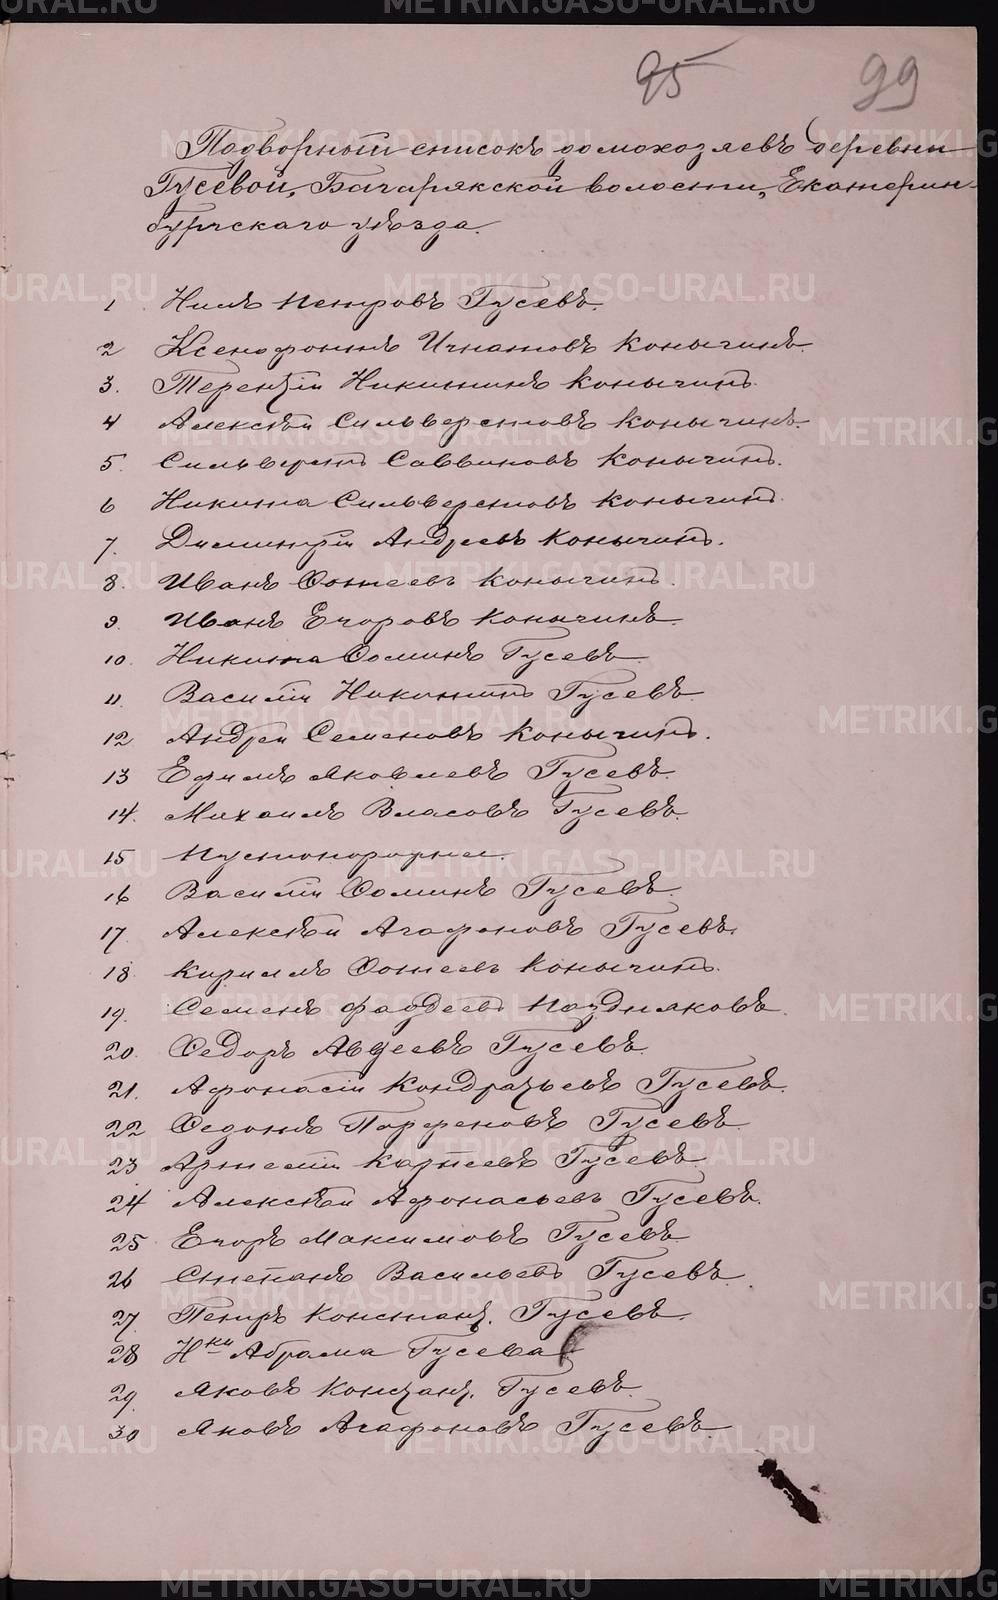 95 99
Подворный списокъ домохозяевъ деревни
Гусевой, Багарякской волости, Екатерин-
бургскаго уѣзда.
1 Нилъ Петровъ Гусевъ.
2 Ксенофонтъ Игнатовъ Конычинъ.
3. Терентій Никитинъ Конычинъ.
4 Алексѣй Сильверстовъ Конычинъ.
5. Сильверстъ Саввиновъ Конычинъ.
6 Никита Сильверстовъ Конычинъ.
7. Димитрій Андреевъ Конычинъ.
8. Иванъ Фотеевъ Конычинъ.
9. Иванъ Егоровъ Конычинъ.
10. Никита Фоминъ Гусевъ
11. Василій Никитинъ Гусевъ
12 Андрей Семеновъ Конычинъ.
13 Ефимъ Яковлевъ Гусевъ.
14. Михаилъ Власовъ Гусевъ.
15
16 Василій Фоминъ Гусевъ.
17. Алексѣй Агафоновъ Гусевъ.
18 Кириллъ Фотеевъ Конычинъ.
19. Семенъ Фаддеевъ Поздняковъ.
20. Федоръ Авдеевъ Гусевъ.
21. Афонасій Кондратьевъ Гусевъ.
22 Федотъ Парфеновъ Гусевъ.
23 Артемій Карпеевъ Гусевъ.
24 Алексѣй Афонасьевъ Гусевъ.
25 Егоръ Максимовъ Гусевъ
26 Степанъ Васильевъ Гусевъ.
27. Петръ Констант. Гусевъ.
28 Н-ки Абрама Гусева
29. Яковъ Констант. Гусевъ.
30 Яковъ Агафоновъ Гусевъ.
METRIKI.GASO-URAL.RU